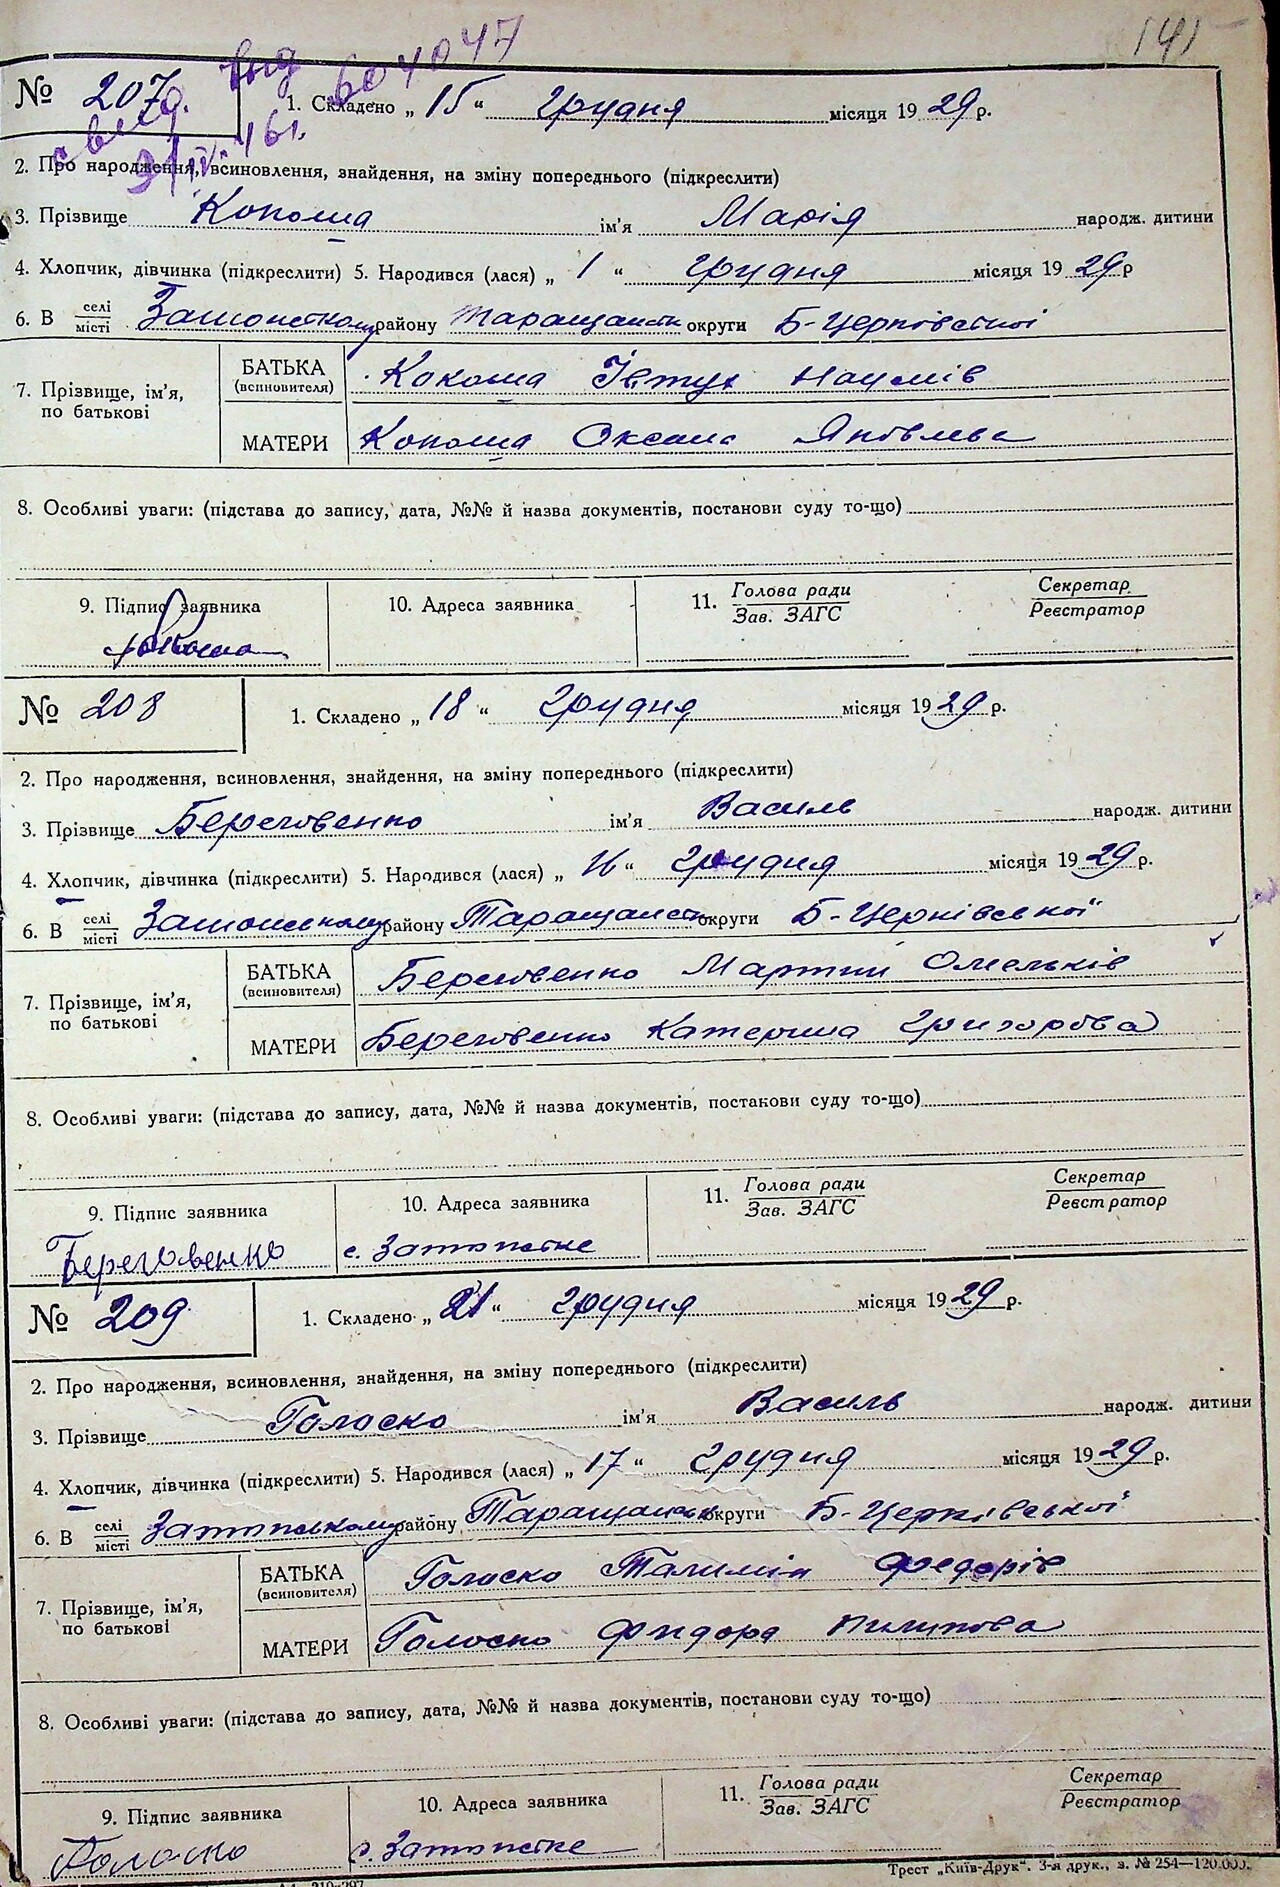 141
вид 604047
№ 207 1. Складено „ 15 “ грудня місяця 19 29 р.
2. Про народження, всиновлення, знайдення, на зміну попереднього (підкреслити)
3. Прізвище Кокоша ім'я Марія народж. дитини
4. Хлопчик, дівчинка (підкреслити) 5. Народився (лася) „ 1 “ грудня місяця 19 29 р
6. В селі/місті району Таращанськ округи Б-Церківської
7. Прізвище, ім'я, по батькові
БАТЬКА (всиновителя) Кокоша Івтух Наумів
МАТЕРИ Кокоша Оксана Яковлева
8. Особливі уваги: (підстава до запису, дата, №№ й назва документів, постанови суду то-що)
9. Підпис заявника 10. Адреса заявника 11. Голова ради/Зав. ЗАГС Секретар/Реєстратор
Кокоша
№ 208 1. Складено „ 18 “ грудня місяця 19 29 р.
2. Про народження, всиновлення, знайдення, на зміну попереднього (підкреслити)
3. Прізвище Береговенко ім'я Василь народж. дитини
4. Хлопчик, дівчинка (підкреслити) 5. Народився (лася) „ 16 “ грудня місяця 19 29 р.
6. В селі/місті району Таращанськ округи Б-Церківської
7. Прізвище, ім'я, по батькові
БАТЬКА (всиновителя) Береговенко Мартин Омельків
МАТЕРИ Береговенко Катерина Григорова
8. Особливі уваги: (підстава до запису, дата, №№ й назва документів, постанови суду то-що)
9. Підпис заявника 10. Адреса заявника 11. Голова ради/Зав. ЗАГС Секретар/Реєстратор
Береговенко с.
№ 209 1. Складено „ 21 “ грудня місяця 19 29 р.
2. Про народження, всиновлення, знайдення, на зміну попереднього (підкреслити)
3. Прізвище Голоско ім'я Василь народж. дитини
4. Хлопчик, дівчинка (підкреслити) 5. Народився (лася) „ 17 “ грудня місяця 19 29 р.
6. В селі/місті району Таращанськ округи Б-Церківської
7. Прізвище, ім'я, по батькові
БАТЬКА (всиновителя) Голоско Федорів
МАТЕРИ Голоско Фидора Пилипова
8. Особливі уваги: (підстава до запису, дата, №№ й назва документів, постанови суду то-що)
9. Підпис заявника 10. Адреса заявника 11. Голова ради/Зав. ЗАГС Секретар/Реєстратор
Голоско с.
Трест „Київ-Друк“. 3-я друк., з. № 254—120.000.